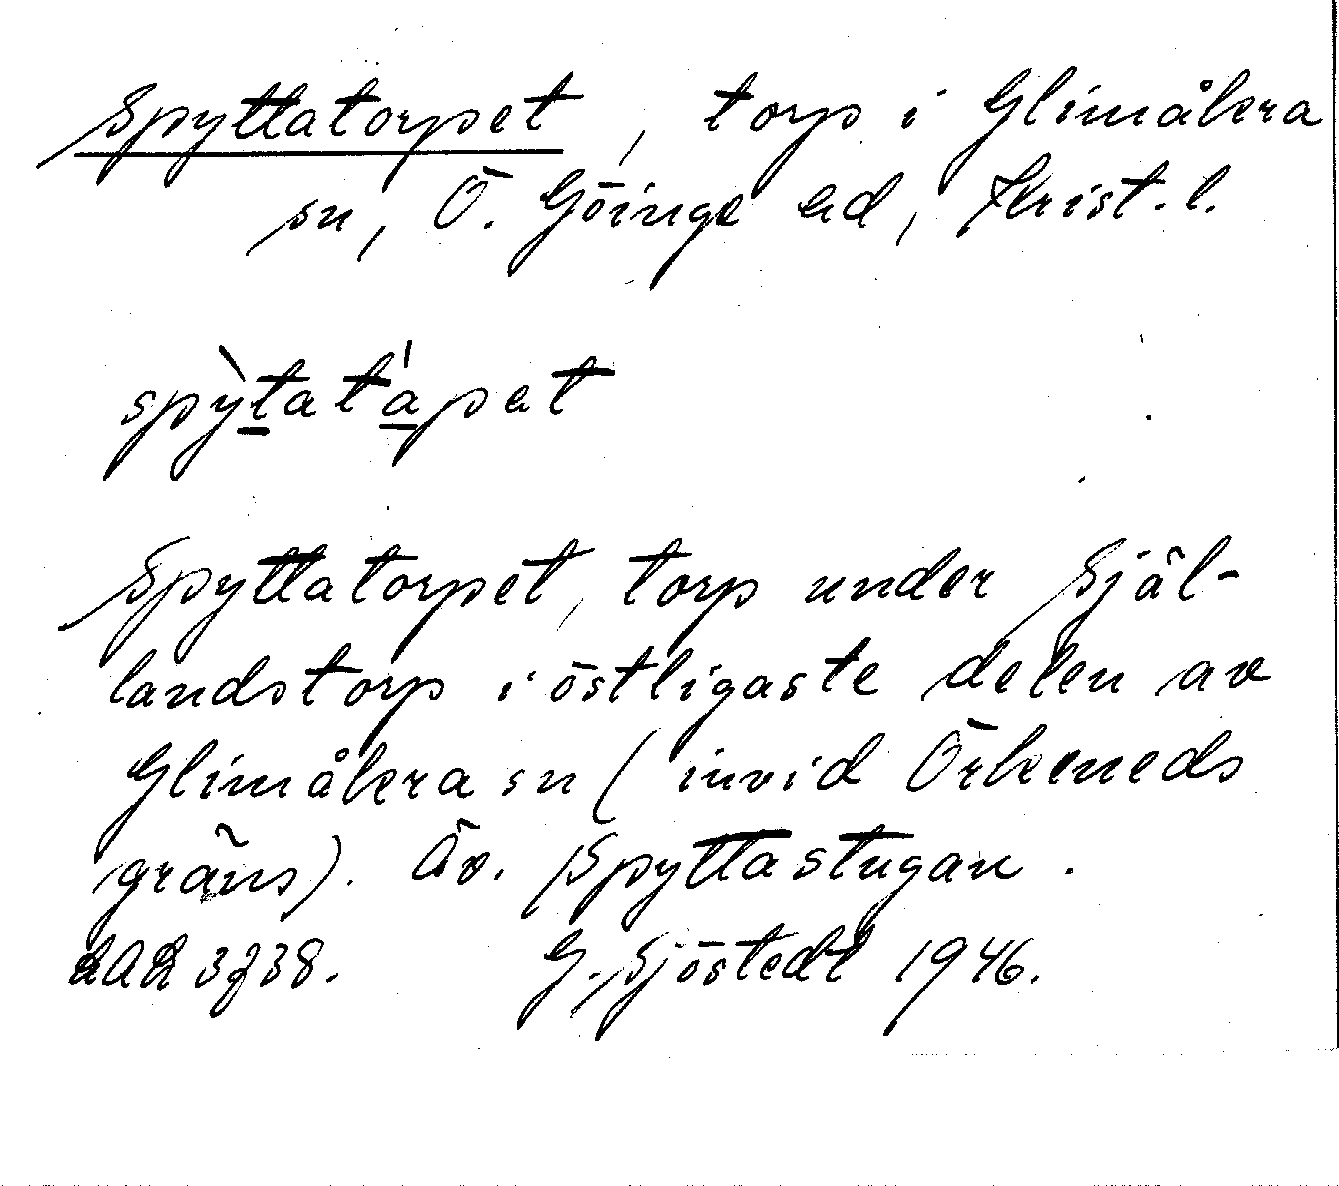 Spyttatorpet, torp i Glimåkra
sn, Ö. Göinge hd, Krist. l.
spỳt̲at'a̲pet
Spyttatorpet, torp under Själ-
landstorp i östligaste delen av
Glimåkra sn (invid Örkeneds
gräns). Äv. Spyttastugan.
LAL 3738. G. Sjöstedt 1946.